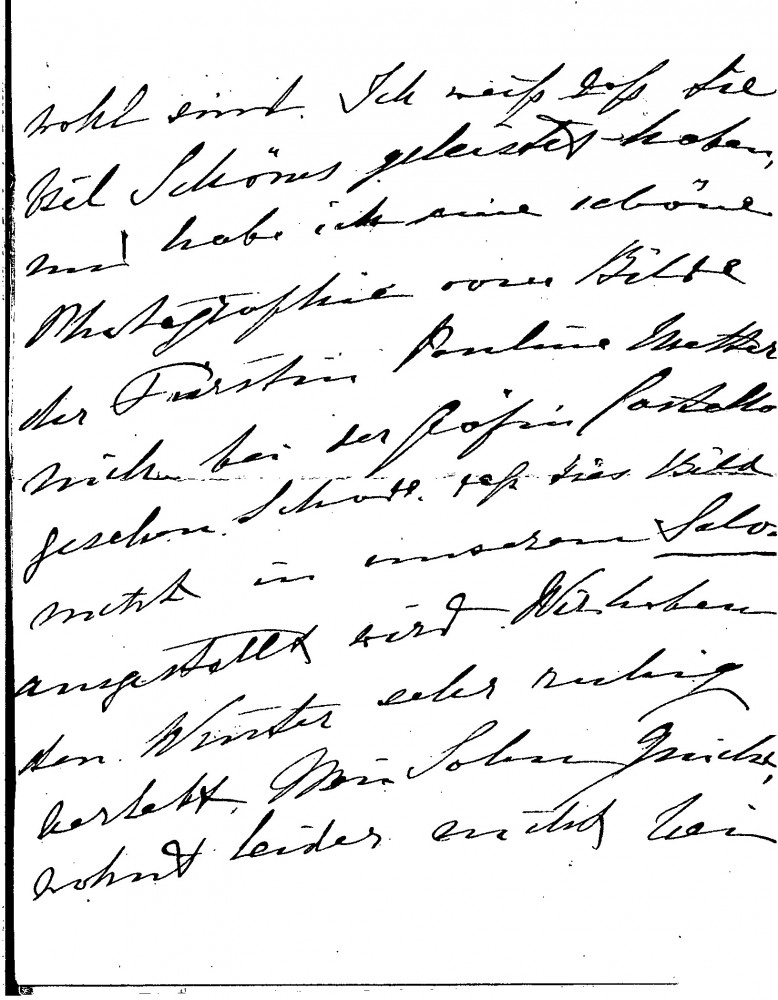 wohl sind. Ich weiß daß Sie
viel Schönes geleistet haben,
und habe ich eine schöne
Photographie vom Bilde
der Fürstin Pauline Metter
nich bei der Gräfin Castello
gesehen. Schade, daß dies Bild
nicht in unserem Salon
ausgestellt wird. Wir haben
den Winter sehr ruhig
verlebt. Mein Sohn
wohnt leider nicht bei